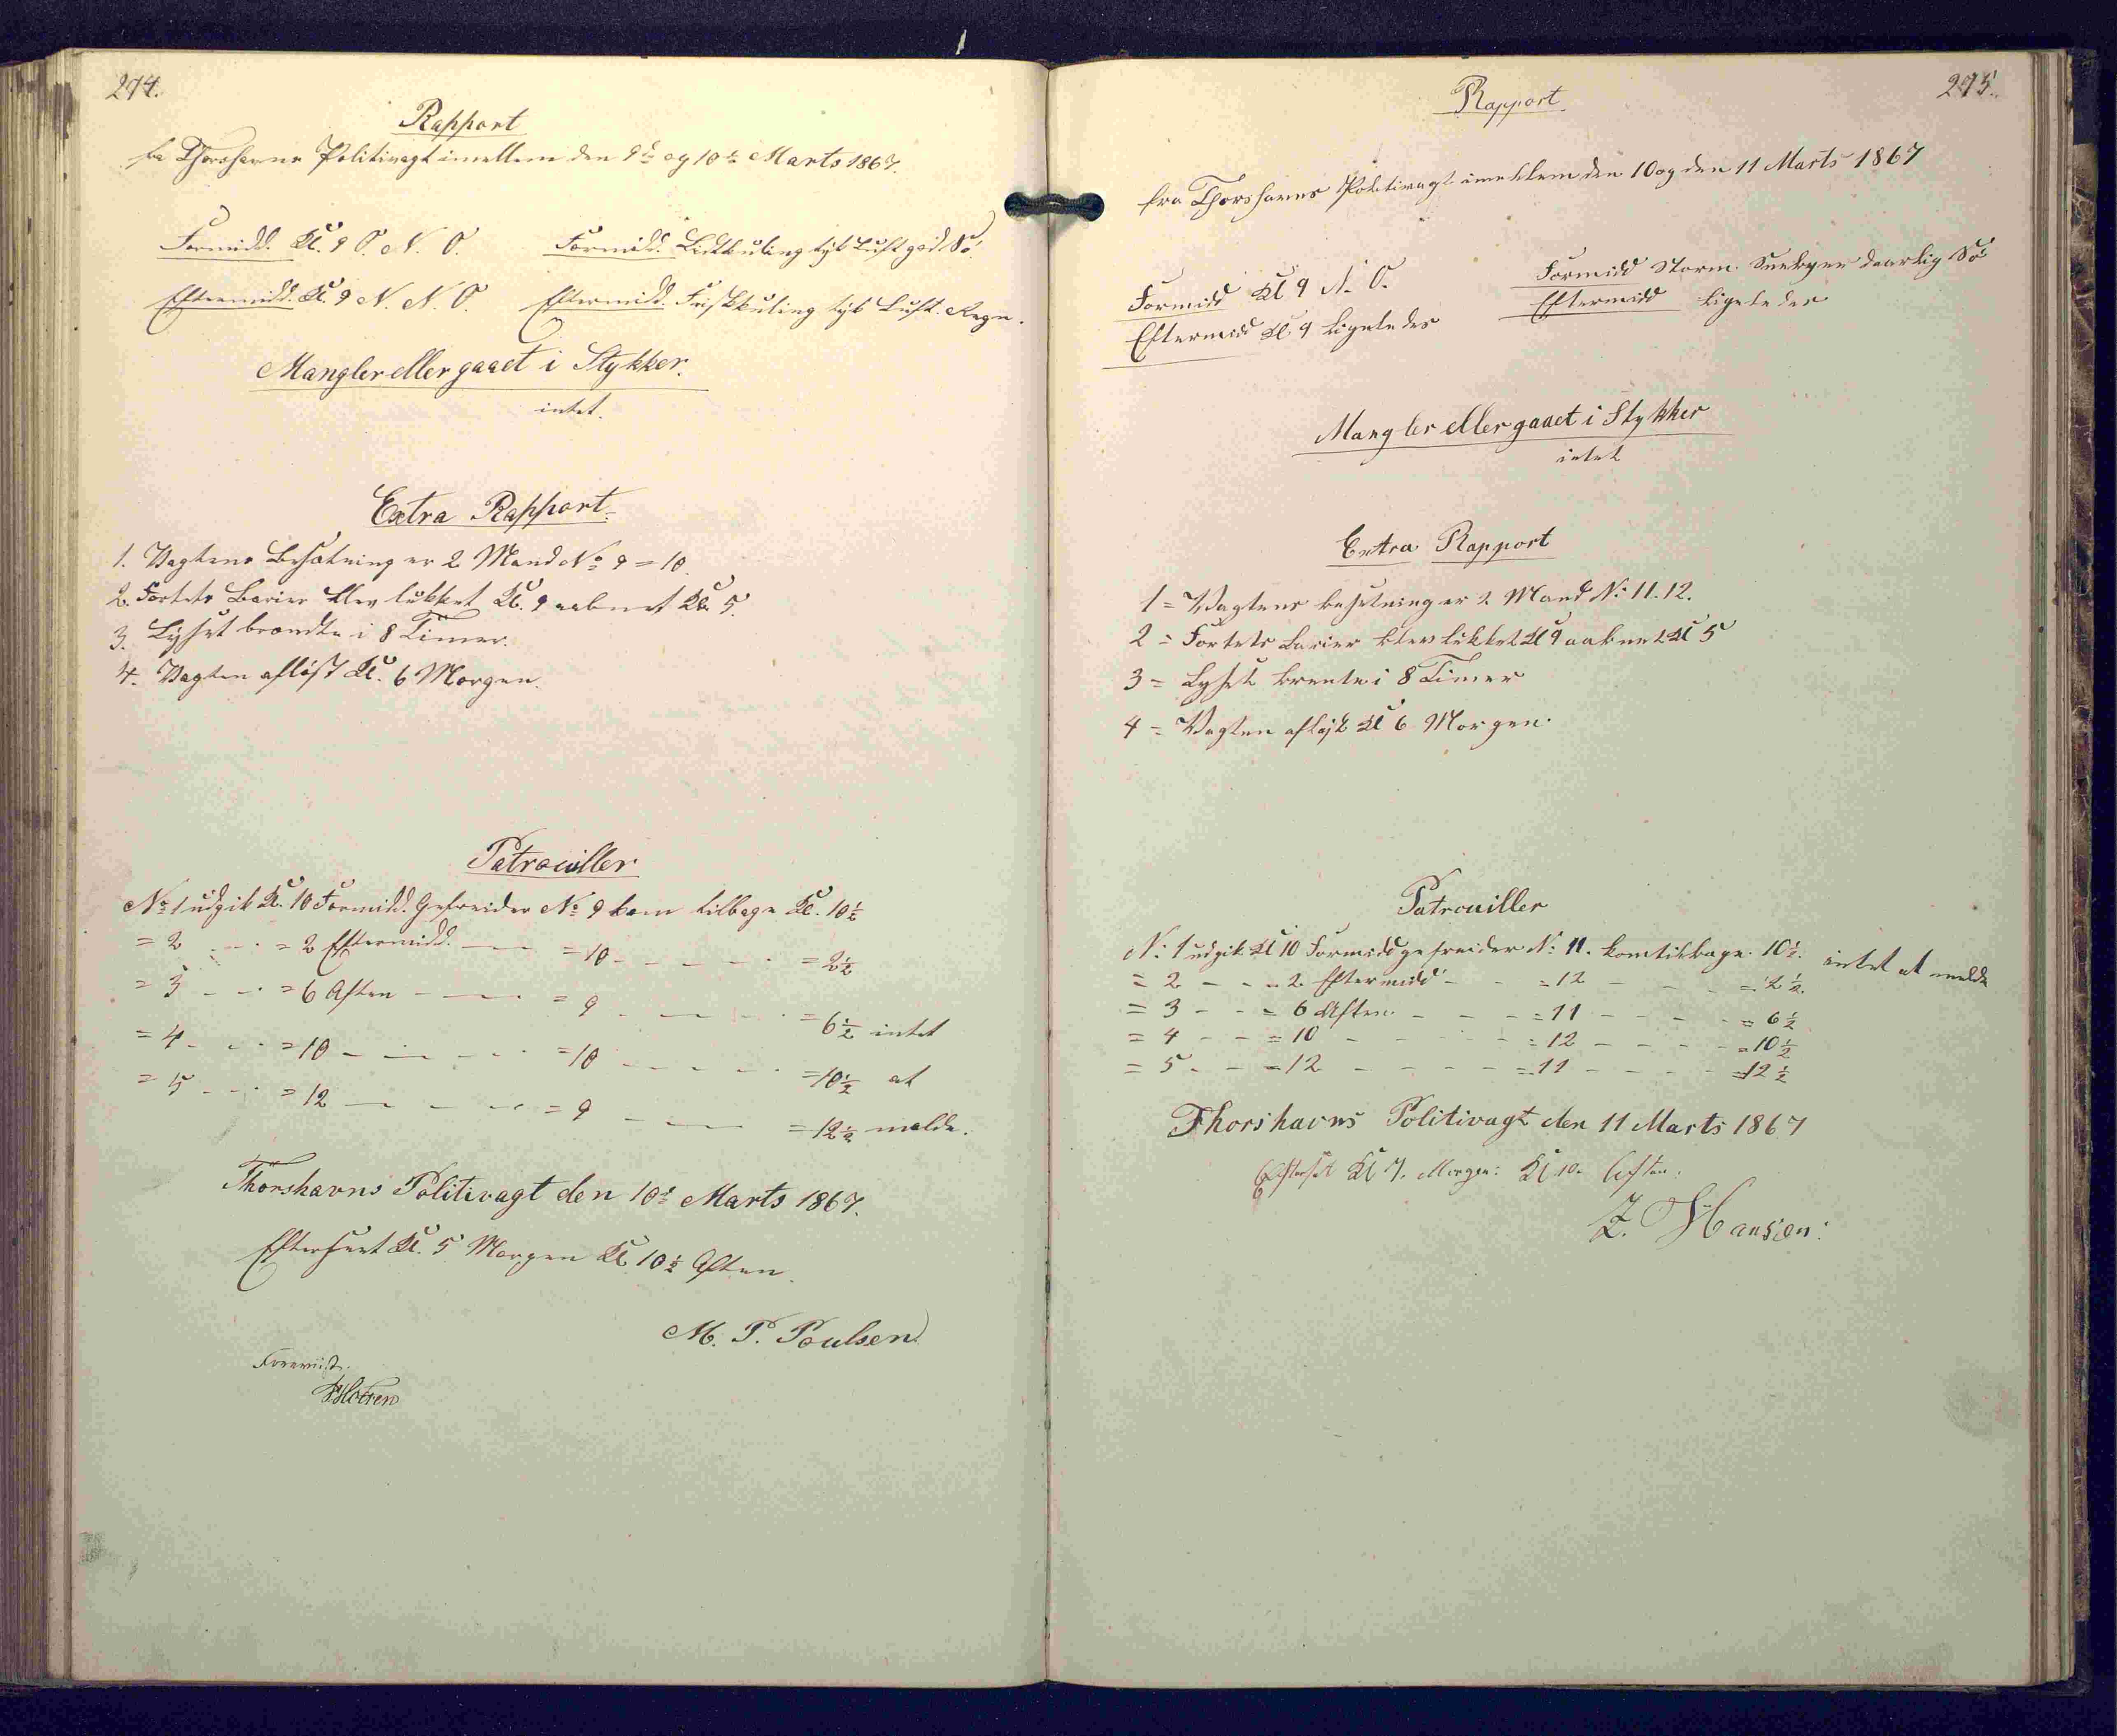 274.
Rapport
fra Thorshavns Politivagt imellem den 9de og 10de Marts 1867.
Formidd. Kl. 9 O. N. O. Formidd. Lidt kuling tyk Luft god Sö.
Eftermidd. Kl. 9 N. N. O. Eftermidd. Frisk kuling tyk Luft. Regn.
Mangler eller gaaet i Stykker.
intet.
Extra Rapport.
1. Vagtens Besætning er 2 Mand No 9 = 10.
2. Fortets Barier blev lukket Kl. 9 aabnet Kl. 5.
3. Lyset brændte i 8 Timer.
4. Vagten aflöst Kl. 6 Morgen.
Patrouiller
No 1 udgik Kl. 10 Formidd. Gefreider No 9 kom tilbage Kl. 10½
= 2 - - = 2 Eftermidd. - = 10 - - - = 2½
= 3 - - = 6 Aften - - = 9 - - - = 6½ intet
= 4 - - = 10 - - - = 10 - - - = 10½ at
= 5 - - = 12 - - - = 9 - - = 12½ melde.
Thorshavns Politivagt den 10de Marts 1867.
Efterseet Kl. 5 Morgen Kl. 10½ Aften.
M. P. Poulsen
Foreviist.
275.
Rapport
fra Thorshavns Politivagt imellem den 10 og den 11 Marts 1867
Formidd Kl 9 N. O. Formidd Storm. Snebyer daarlig Sö
Eftermidd Kl. 9 Ligeledes Eftermidd Ligeledes
Mangler eller gaaet i Stykker
intet
Extra Rapport
1 = Vagtens besetning er 2 Mand N: 11. 12.
2 = Fortets Barier blev lukket Kl 9 aabnet Kl 5
3 = Lyset brente i 8 Timer
4 = Vagten aflöst Kl 6 Morgen.
Patrouiller
N: 1 udgik Kl 10 Formidd gefreider N: 11. kom tilbage 10½. intet at melde
= 2 - - = 2. Eftermidd - - = 12 - - - = 2½.
= 3 - - = 6 Aften - - - = 11 - - - = 6½
= 4 - - = 10 - - - - = 12 - - - = 10½
= 5 - - = 12 - - - - = 11 - - - = 12½
Thorshavns Politivagt den 11 Marts 1867
Efterset Kl 7. Morgen: Kl 10. Aften:
Z. Hansen: